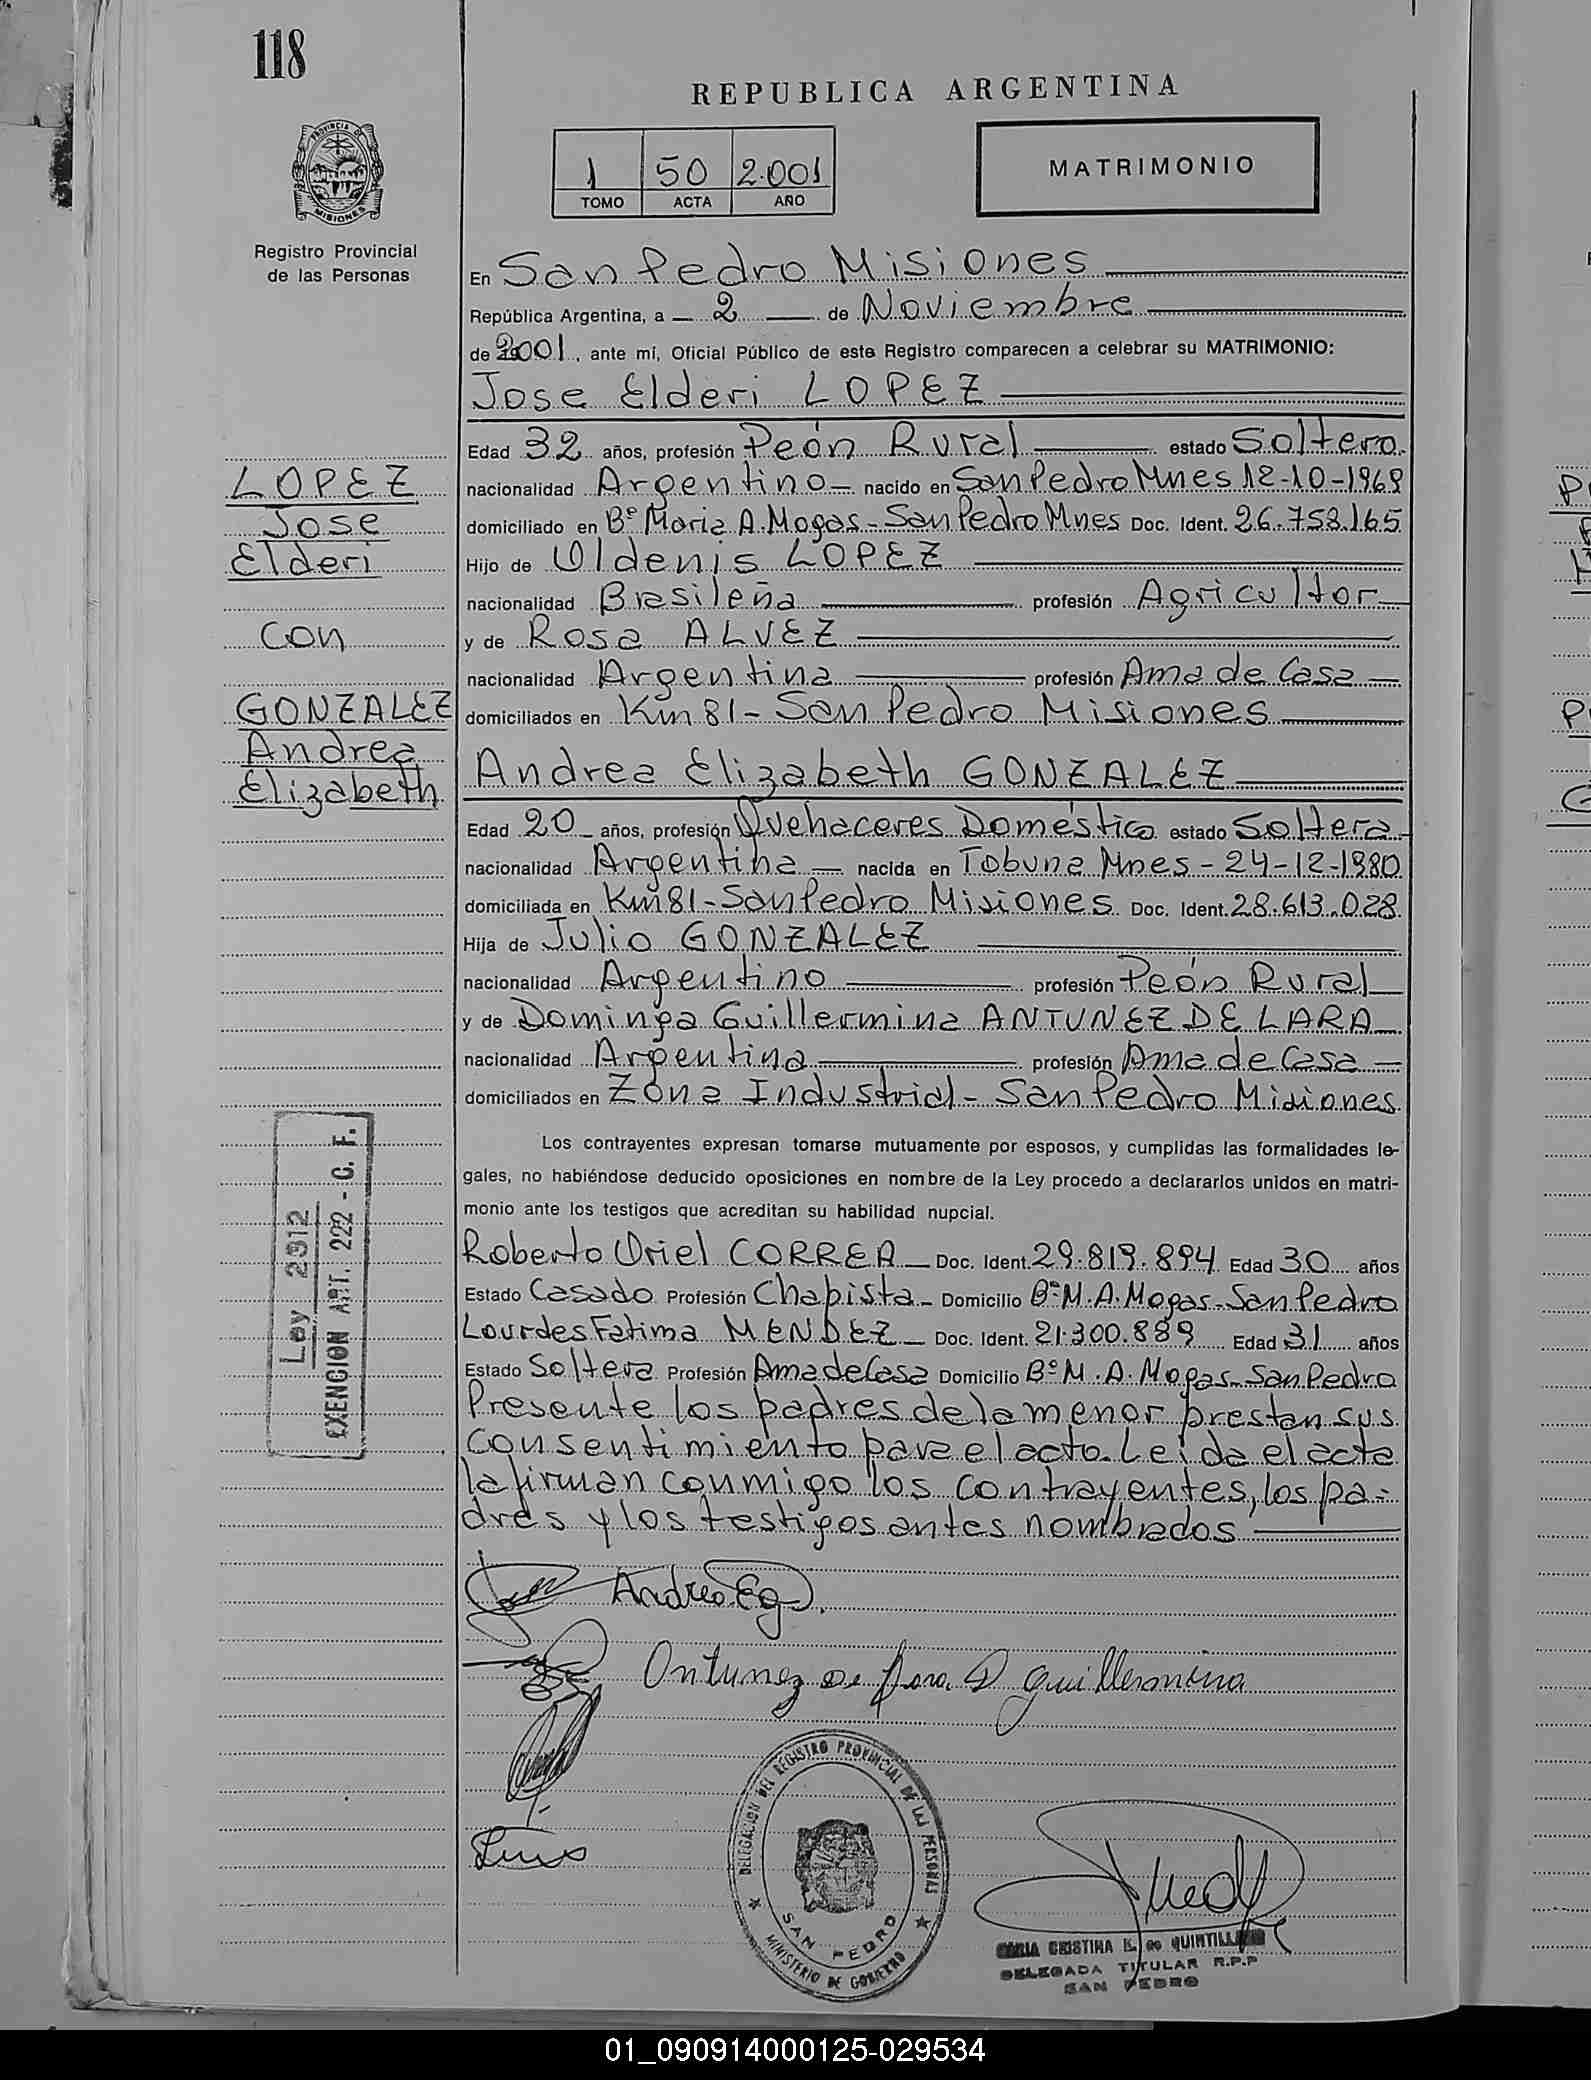 118
REPUBLICA ARGENTINA
PROVINCIA DE
MISIONES
1 50 2.001
TOMO ACTA AÑO
MATRIMONIO
Registro Provincial
de las Personas
En San Pedro Misiones
República Argentina, a 2 de Noviembre
de 2001, ante mí, Oficial Público de este Registro comparecen a celebrar su MATRIMONIO:
Jose Elderi LOPEZ
Edad 32 años, profesión Peón Rural estado Soltero
nacionalidad Argentino nacido en San Pedro Mnes 12-10-1969
domiciliado en Bº Maria A. Mogas - San Pedro Mnes Doc. Ident. 26.758.165
Hijo de Oldenis LOPEZ
nacionalidad Brasileña profesión Agricultor
y de Rosa ALVEZ
nacionalidad Argentina profesión Ama de Casa
domiciliados en Km 81 - San Pedro Misiones
LOPEZ
Jose
Elderi
con
GONZALEZ
Andrea
Elizabeth
Andrea Elizabeth GONZALEZ
Edad 20 años, profesión Quehaceres Doméstico estado Soltera
nacionalidad Argentina nacida en Tobuna Mnes - 24-12-1980
domiciliada en Km 81 - San Pedro Misiones Doc. Ident. 28.613.028
Hija de Julio GONZALEZ
nacionalidad Argentino profesión Peón Rural
y de Dominga Guillermina ANTUNEZ DE LARA
nacionalidad Argentina profesión Ama de Casa
domiciliados en Zona Industrial - San Pedro Misiones
Los contrayentes expresan tomarse mutuamente por esposos, y cumplidas las formalidades le-
gales, no habiéndose deducido oposiciones en nombre de la Ley procedo a declararlos unidos en matri-
monio ante los testigos que acreditan su habilidad nupcial.
Roberto Oriel CORREA Doc. Ident. 29.819.894 Edad 30 años
Estado Casado Profesión Chapista Domicilio Bº M. A. Mogas - San Pedro
Lourdes Fatima MENDEZ Doc. Ident. 21.300.889 Edad 31 años
Estado Soltera Profesión Ama de Casa Domicilio Bº M. A. Mogas - San Pedro
Presente los padres de la menor prestan sus
consentimiento para el acto. Leída el acta
la firman conmigo los contrayentes, los pa-
dres y los testigos antes nombrados
Ley 2312
EXENCION ART. 222 - C. F.
Andrea E g
Antunez de Lara D guillermina
DELEGACION DEL REGISTRO PROVINCIAL DE LAS PERSONAS
SAN PEDRO
MINISTERIO DE GOBIERNO
MARIA CRISTINA K. de
DELEGADA TITULAR R.P.P
SAN PEDRO
01_090914000125-029534